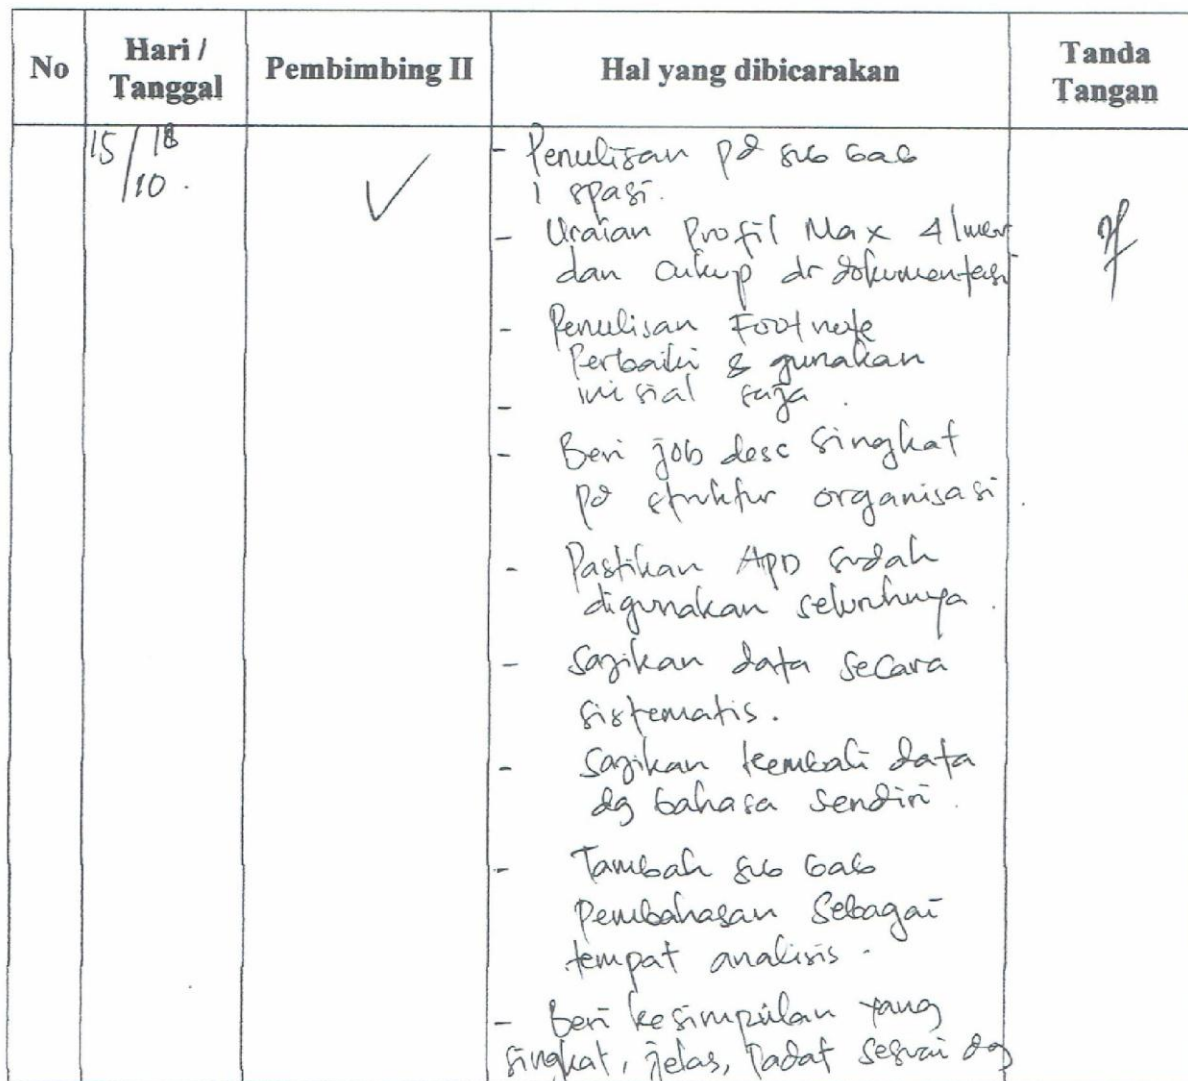 No Hari / Tanggal Pembimbing II Hal yang dibicarakan Tanda Tangan
15/18
/10.
- Penulisan pd sub bab
1 spasi.
- Uraian Profil Max 4 lmbr
dan cukup dr dokumentasi
- Penulisan Footnote
Perbaiki & gunakan
inisial saja.
-
- Beri job desc singkat
pd struktur organisasi.
- Pastikan APD sudah
digunakan seluruhnya.
- Sajikan data secara
sistematis.
- Sajikan kembali data
dg bahasa sendiri.
- Tambah sub bab
Pembahasan Sebagai
tempat analisis.
- Beri kesimpulan yang
singkat, jelas, Padat sesuai dg